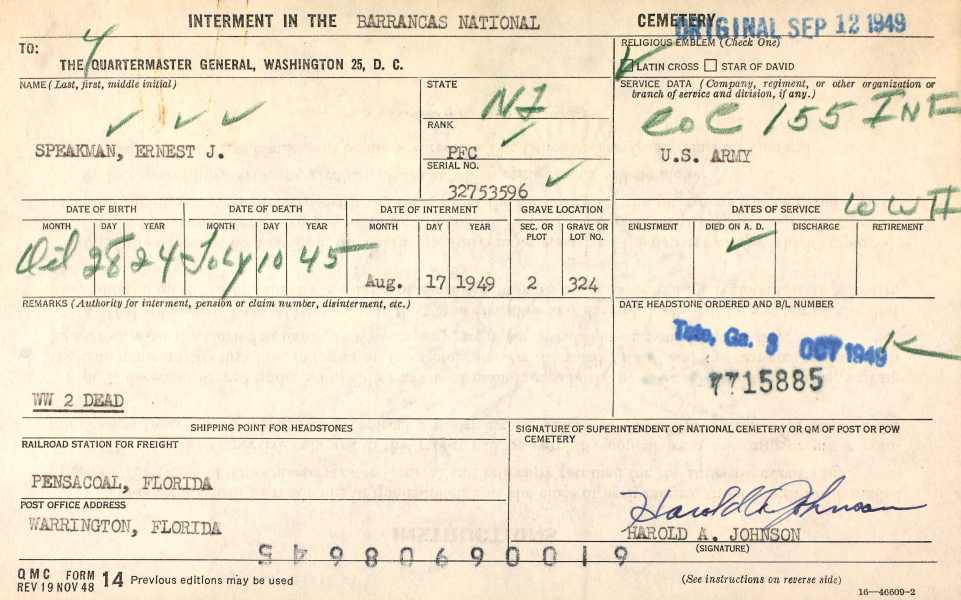 INTERMENT IN THE BARRANCAS NATIONAL CEMETERY
ORIGINAL SEP 12 1949
TO: 4
THE QUARTERMASTER GENERAL, WASHINGTON 25, D. C.
RELIGIOUS EMBLEM (Check One)
LATIN CROSS STAR OF DAVID
NAME (Last, first, middle initial)
SPEAKMAN, ERNEST J.
STATE
NJ
RANK
PFC
SERIAL NO.
32753596
SERVICE DATA (Company, regiment, or other organization or branch of service and division, if any.)
CO C 155 INF
U.S. ARMY
DATE OF BIRTH DATE OF DEATH DATE OF INTERMENT GRAVE LOCATION
MONTH DAY YEAR MONTH DAY YEAR MONTH DAY YEAR SEC. OR PLOT GRAVE OR LOT NO.
28 24 July 10 45 Aug. 17 1949 2 324
DATES OF SERVICE WW II
ENLISTMENT DIED ON A. D. DISCHARGE RETIREMENT
REMARKS (Authority for interment, pension or claim number, disinterment, etc.)
WW 2 DEAD
DATE HEADSTONE ORDERED AND B/L NUMBER
Tate, Ga. 3 OCT 1949
7715885
SHIPPING POINT FOR HEADSTONES
RAILROAD STATION FOR FREIGHT
PENSACOAL, FLORIDA
POST OFFICE ADDRESS
WARRINGTON, FLORIDA
SIGNATURE OF SUPERINTENDENT OF NATIONAL CEMETERY OR QM OF POST OR POW CEMETERY
Harold A Johnson
HAROLD A. JOHNSON
(SIGNATURE)
61006908645
QMC FORM 14 Previous editions may be used
REV 19 NOV 48
(See instructions on reverse side)
16—46609-2